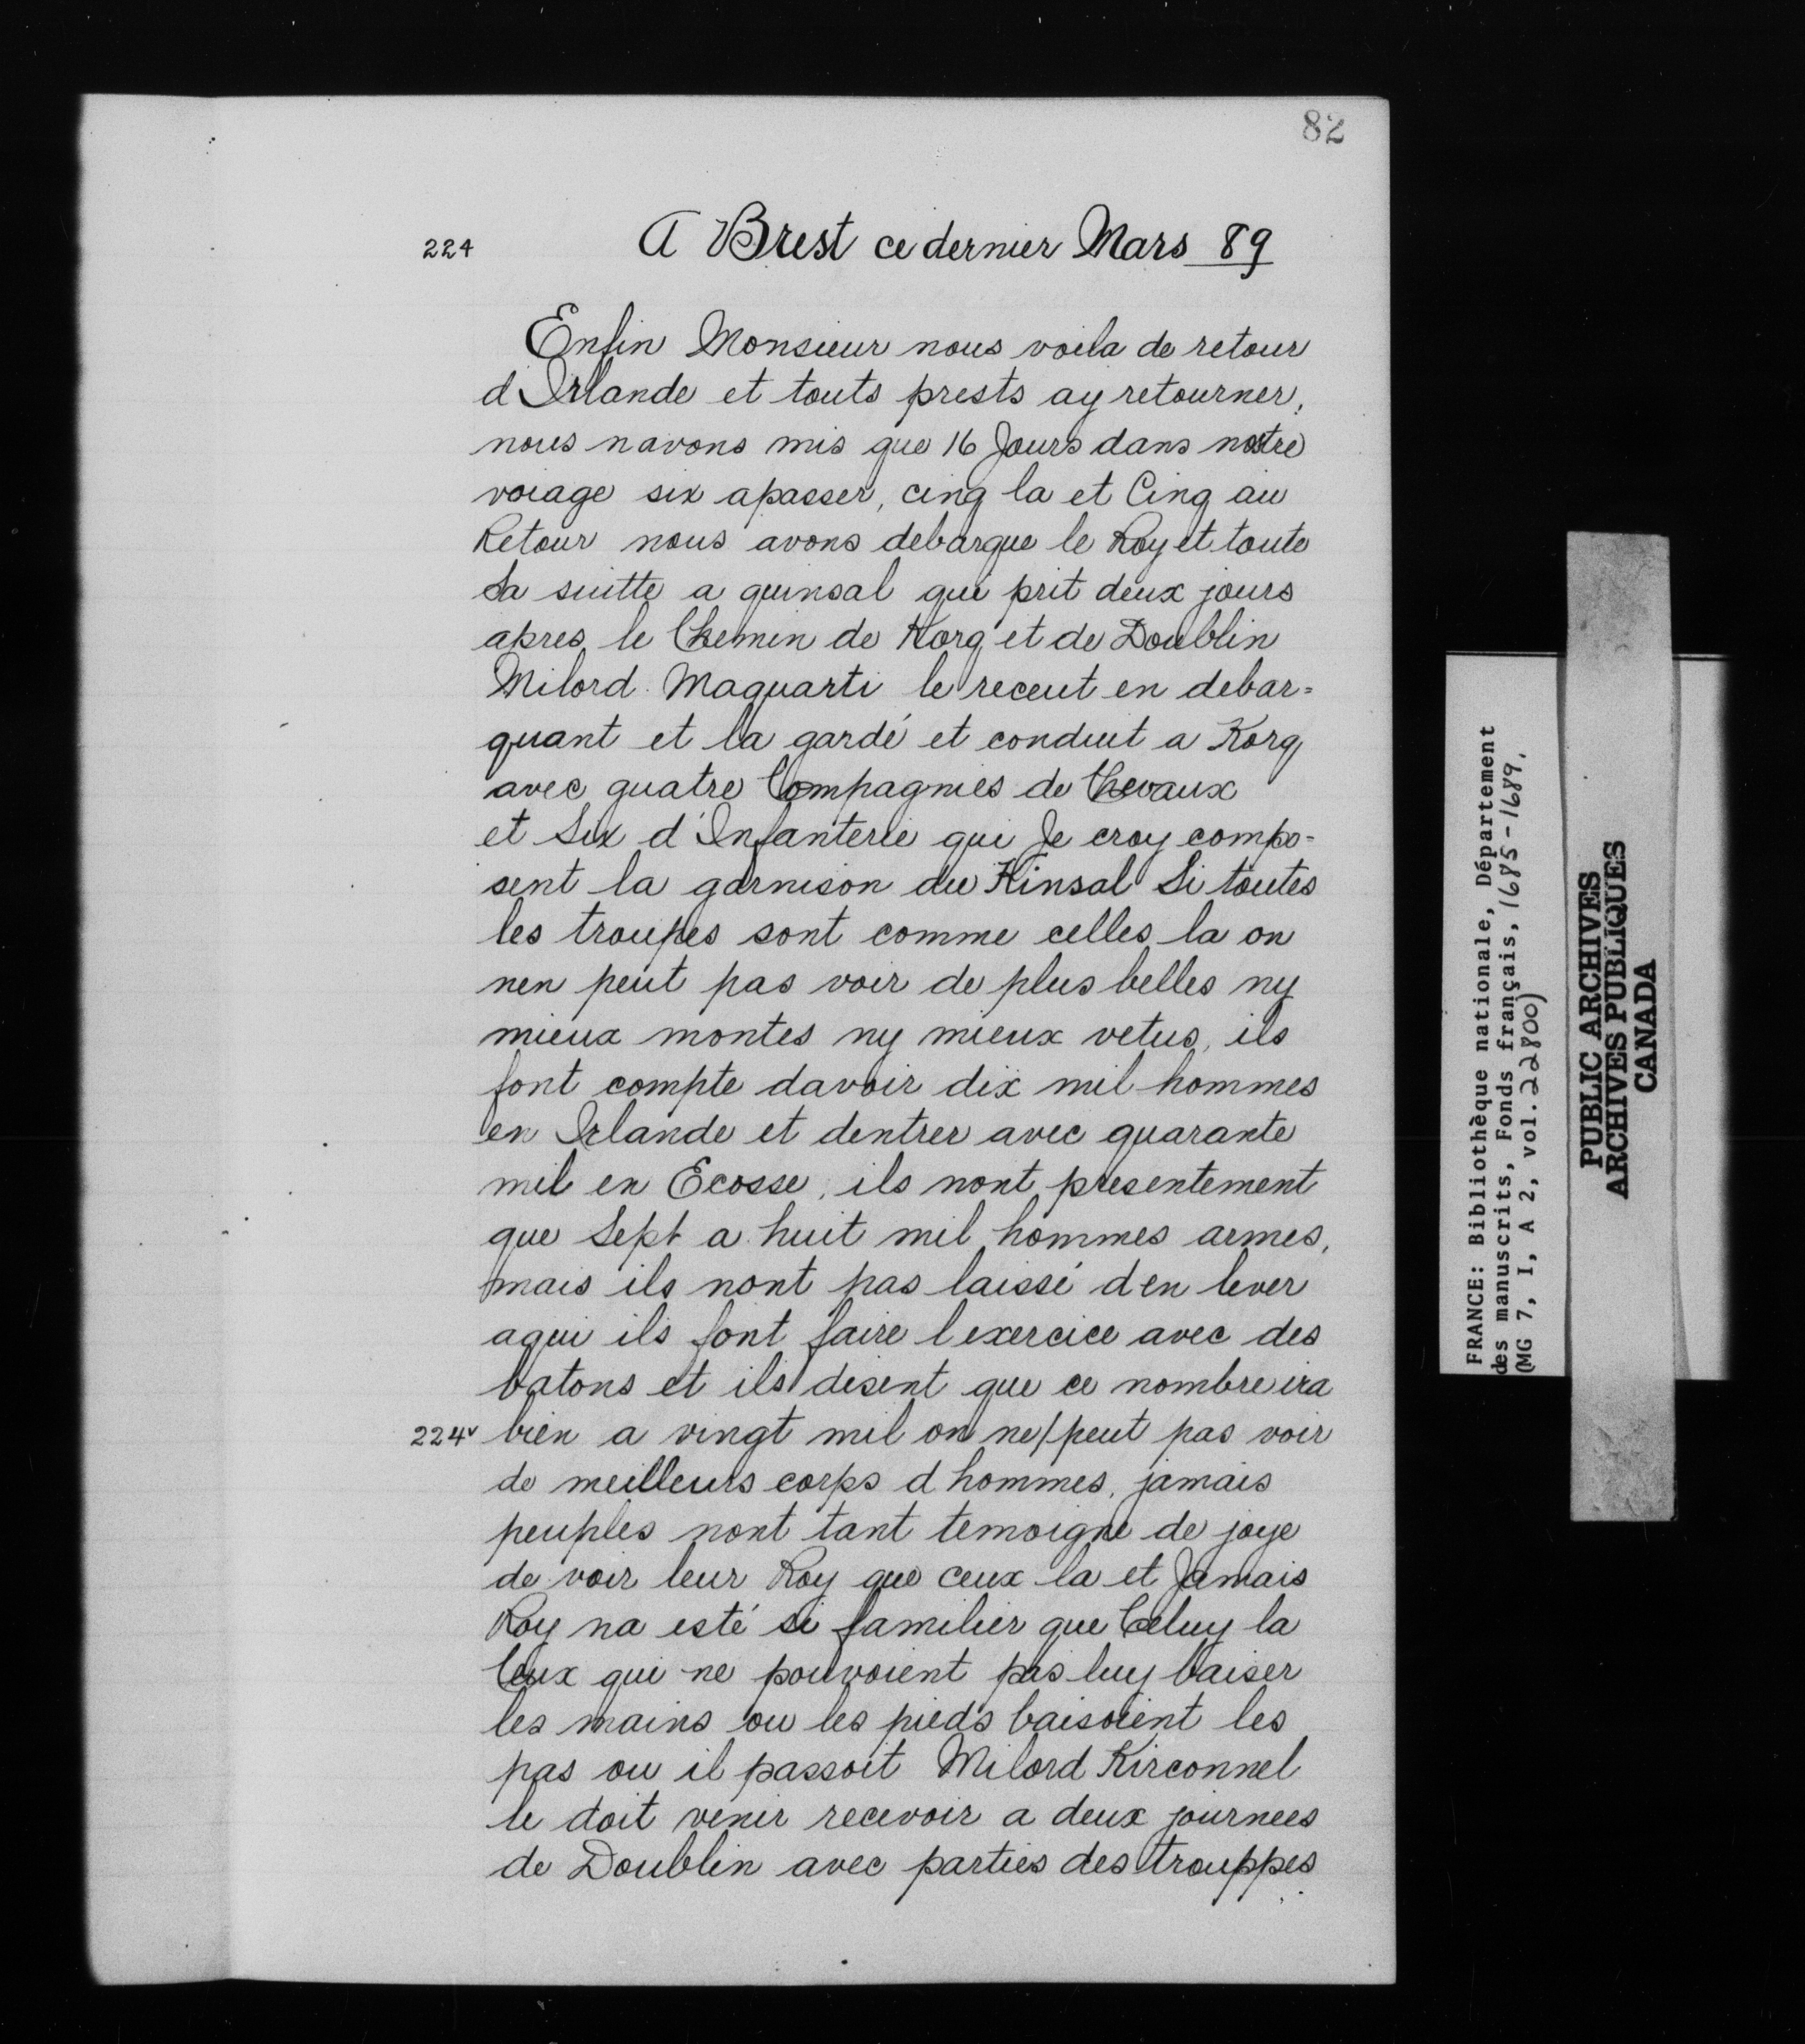 82
224 A Brest ce dernier Mars 89
Enfin Monsieur nous voila de retour
d Irlande et touts prests ay retourner,
nous navons mis que 16 Jours dans nostre
voiage six apasser, cinq la et Cinq au
Retour nous avons debarque le Roy et toute
Sa suitte a quinsal qui prit deux jours
apres le Chemin de Korq et de Doublin
Milord Maquarti le receut en debar=
quant et la gardé et conduit a Korq
avec quatre Compagnies de Chevaux
et Six d'Infanterie qui Je croy compo-
sent la garnison du Kinsal Si toutes
les troupes sont comme celles la on
nen peut pas voir de plus belles ny
mieux montes ny mieux vetus, ils
font compte davoir dix mil hommes
en Irlande et dentrer avec quarante
mil en Ecosse, ils nont presentement
que Sept a huit mil hommes armes,
mais ils nont pas laissé den lever
aqui ils font faire lexercice avec des
batons et ils disent que ce nombre ira
224v bien a vingt mil on ne/peut pas voir
de meilleurs corps d hommes, jamais
peuples nont tant temoigne de joye
de voir leur Roy que ceux la et Jamais
Roy na esté si familier que Celuy la
Ceux qui ne pouvoient pas luy baiser
les mains ou les pieds baisoient les
pas ou il passoit Milord Kirconnel
le doit venir recevoir a deux journees
de Doublin avec parties des trouppes
FRANCE: Bibliothèque nationale, Département
des manuscrits, Fonds français, 1685-1689.
(MG 7, I, A 2, vol. 22800)
PUBLIC ARCHIVES
ARCHIVES PUBLIQUES
CANADA